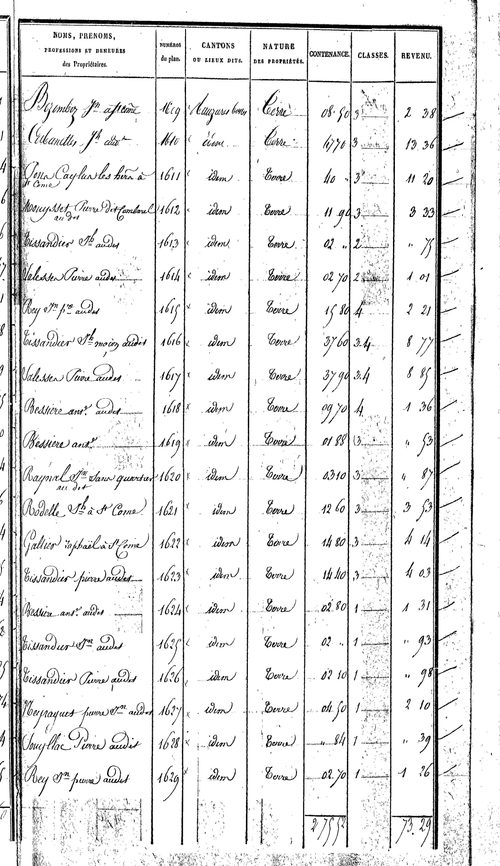 NOMS, PRENOMS, PROFESSIONS ET DEMEURES des Propriétaires. NUMÉROS du plan. CANTONS OU LIEUX DITS. NATURE DES PROPRIÉTÉS. CONTENANCE. CLASSES. REVENU.
1609 Terre 08 50 3 2 38
1610 idem Terre 47 70 3 13 36
Caylus les hers à St Come 1611 idem Terre 40 " 3 11 20
Mouysset Pierre dit audit 1612 idem Terre 11 90 3 3 33
Tissandier Jh audit 1613 idem Terre 02 " 2 " 75
Valesser Pierre audit 1614 idem Terre 02 70 2 1 01
Rey Jn pre audit 1615 idem Terre 15 80 4 2 21
Tissandier Jh audit 1616 idem Terre 37 60 3.4 8 77
Valesser Pierre audit 1617 idem Terre 37 90 3.4 8 85
Bessiere ant. audit 1618 idem Terre 09 70 4 1 36
Bessiere ant. 1619 idem Terre 01 88 3 " 53
Raynal Jn quartier audit 1620 idem Terre 03 10 3 " 87
Rodelle Jh à St Come 1621 idem Terre 12 60 3 3 53
Galtier à St Come 1622 idem Terre 14 80 3 4 14
Tissandier pierre audit 1623 idem Terre 14 40 3 4 03
Bessiere ant. audit 1624 idem Terre 02 80 1 1 31
Tissandier audit 1625 idem Terre 02 " 1 " 93
Tissandier Pierre audit 1626 idem Terre 02 10 1 " 98
pierre Jn audit 1627 idem Terre 04 50 1 2 10
Pierre audit 1628 idem Terre " 84 1 " 39
Rey Jn pierre audit 1629 idem Terre 02 70 1 1 26
2 75 52 73 29